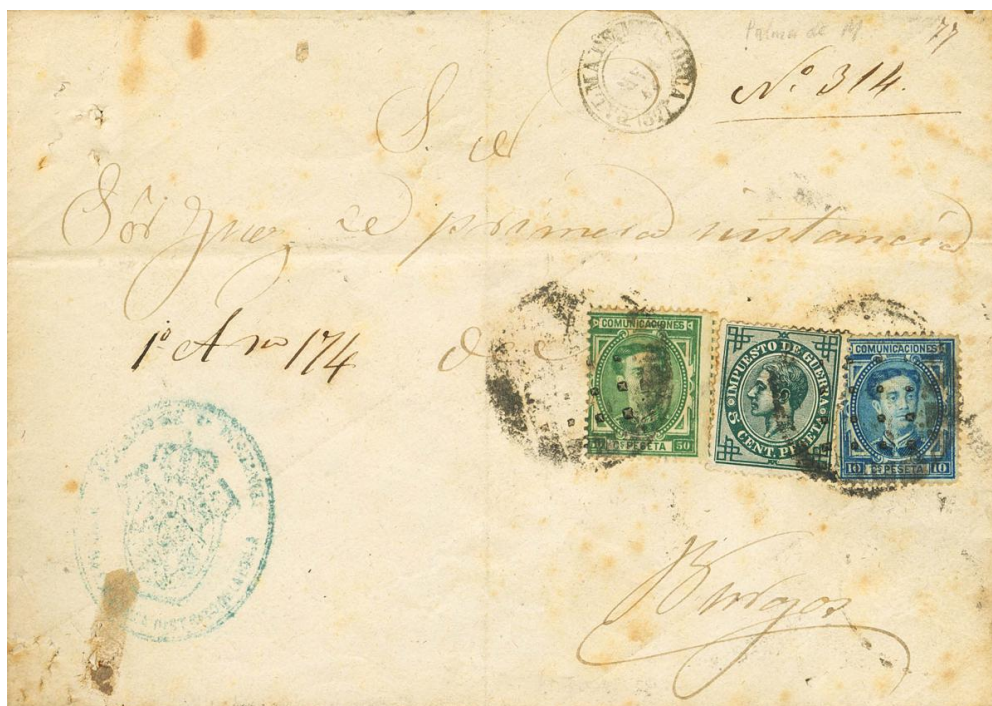 Palma de M
77
PALMA DE MALLORCA
Nº 314.
S. N.
Sôr Juez de primera instancia
1º A no 174
de
COMUNICACIONES
50 Cs PESETA 50
IMPUESTO DE GUERRA
5 CENT. PESETA
COMUNICACIONES
10 Cs PESETA 10
Burgos